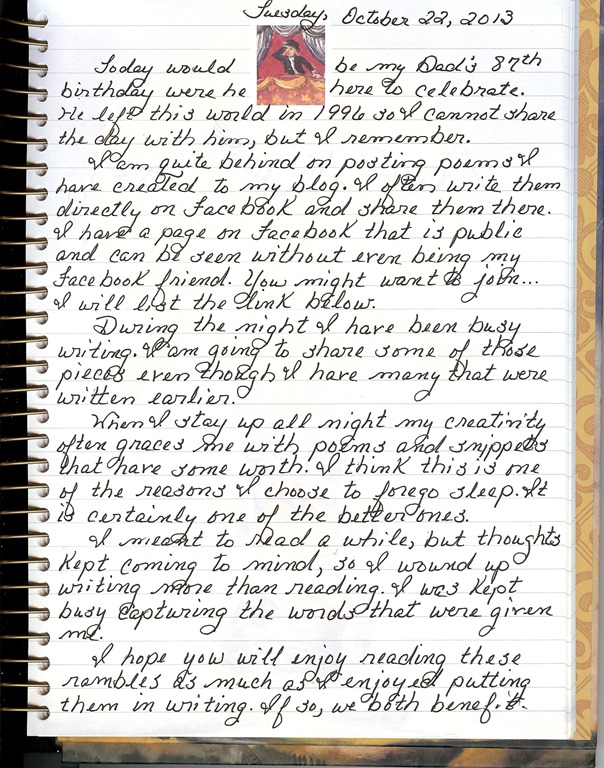 Tuesday, October 22, 2013
Today would be my Dad's 87th
birthday were he here to celebrate.
He left this world in 1996 so I cannot share
the day with him, but I remember.
I am quite behind on posting poems I
have created to my blog. I often write them
directly on Facebook and share them there.
I have a page on Facebook that is public
and can be seen without even being my
Facebook friend. You might want to join...
I will list the link below.
During the night I have been busy
writing. I am going to share some of those
pieces even though I have many that were
written earlier.
When I stay up all night my creativity
often graces me with poems and snippets
that have some worth. I think this is one
of the reasons I choose to forego sleep. It
is certainly one of the better ones.
I meant to read a while, but thoughts
kept coming to mind, so I wound up
writing more than reading. I was kept
busy capturing the words that were given
me.
I hope you will enjoy reading these
rambles as much as I enjoyed putting
them in writing. If so, we both benefit.